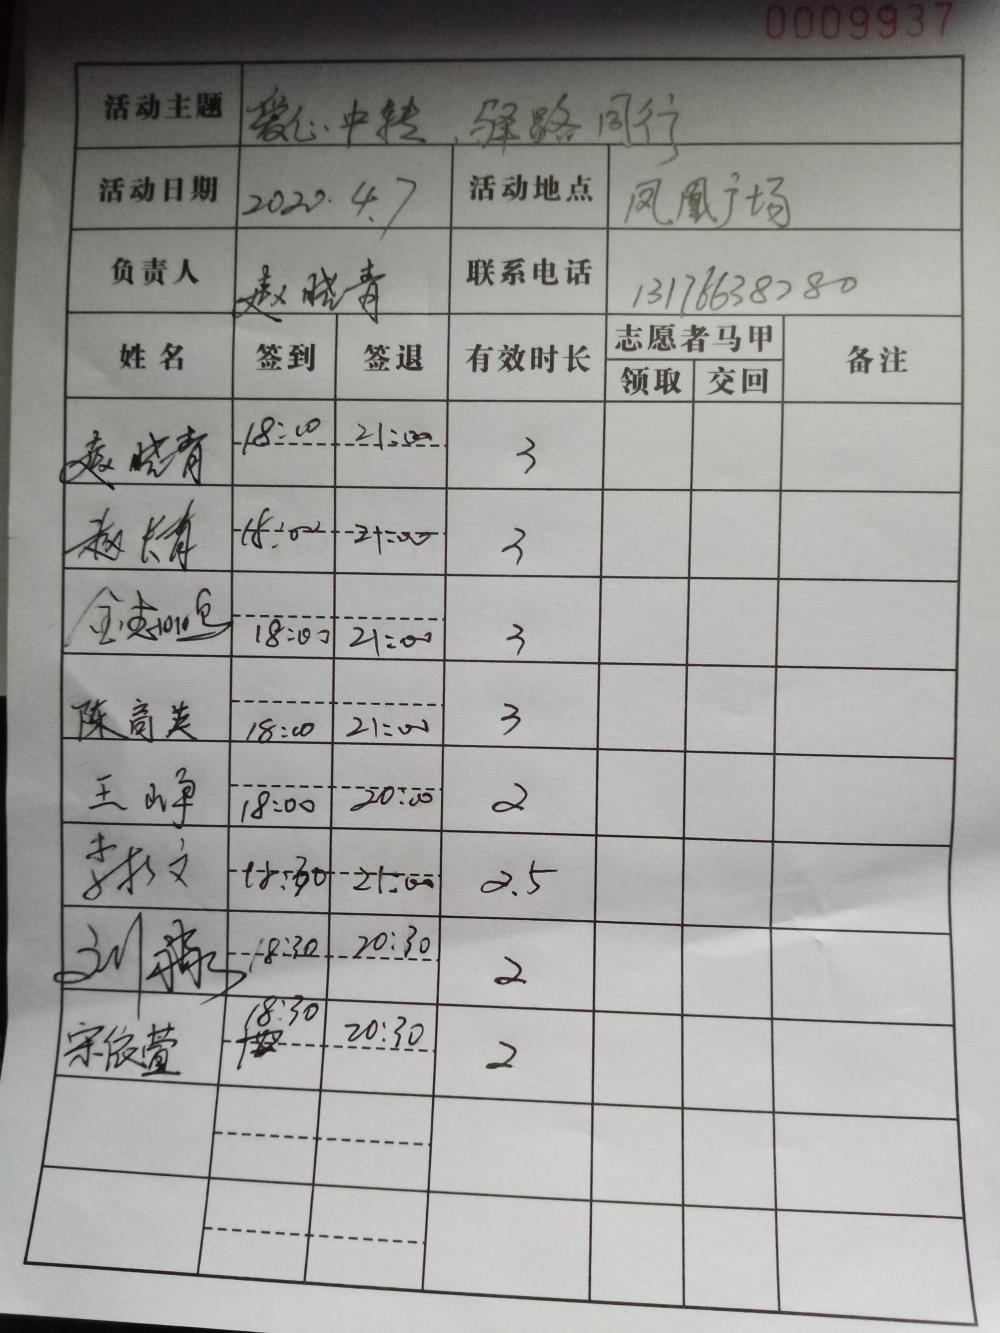 0009937
活动主题 爱心中转、驿路同行
活动日期 2020.4.7 活动地点 凤凰广场
负责人 赵晓青 联系电话 13176638780
姓名 签到 签退 有效时长 志愿者马甲 备注
领取 交回
赵晓青 18:00 21:00 3
赵长青 18:00 21:00 3
18:00 21:00 3
陈高英 18:00 21:00 3
王峥 18:00 20:00 2
李 文 18:30 21:00 2.5
刘 18:30 20:30 2
宋依萱 18:30 20:30 2